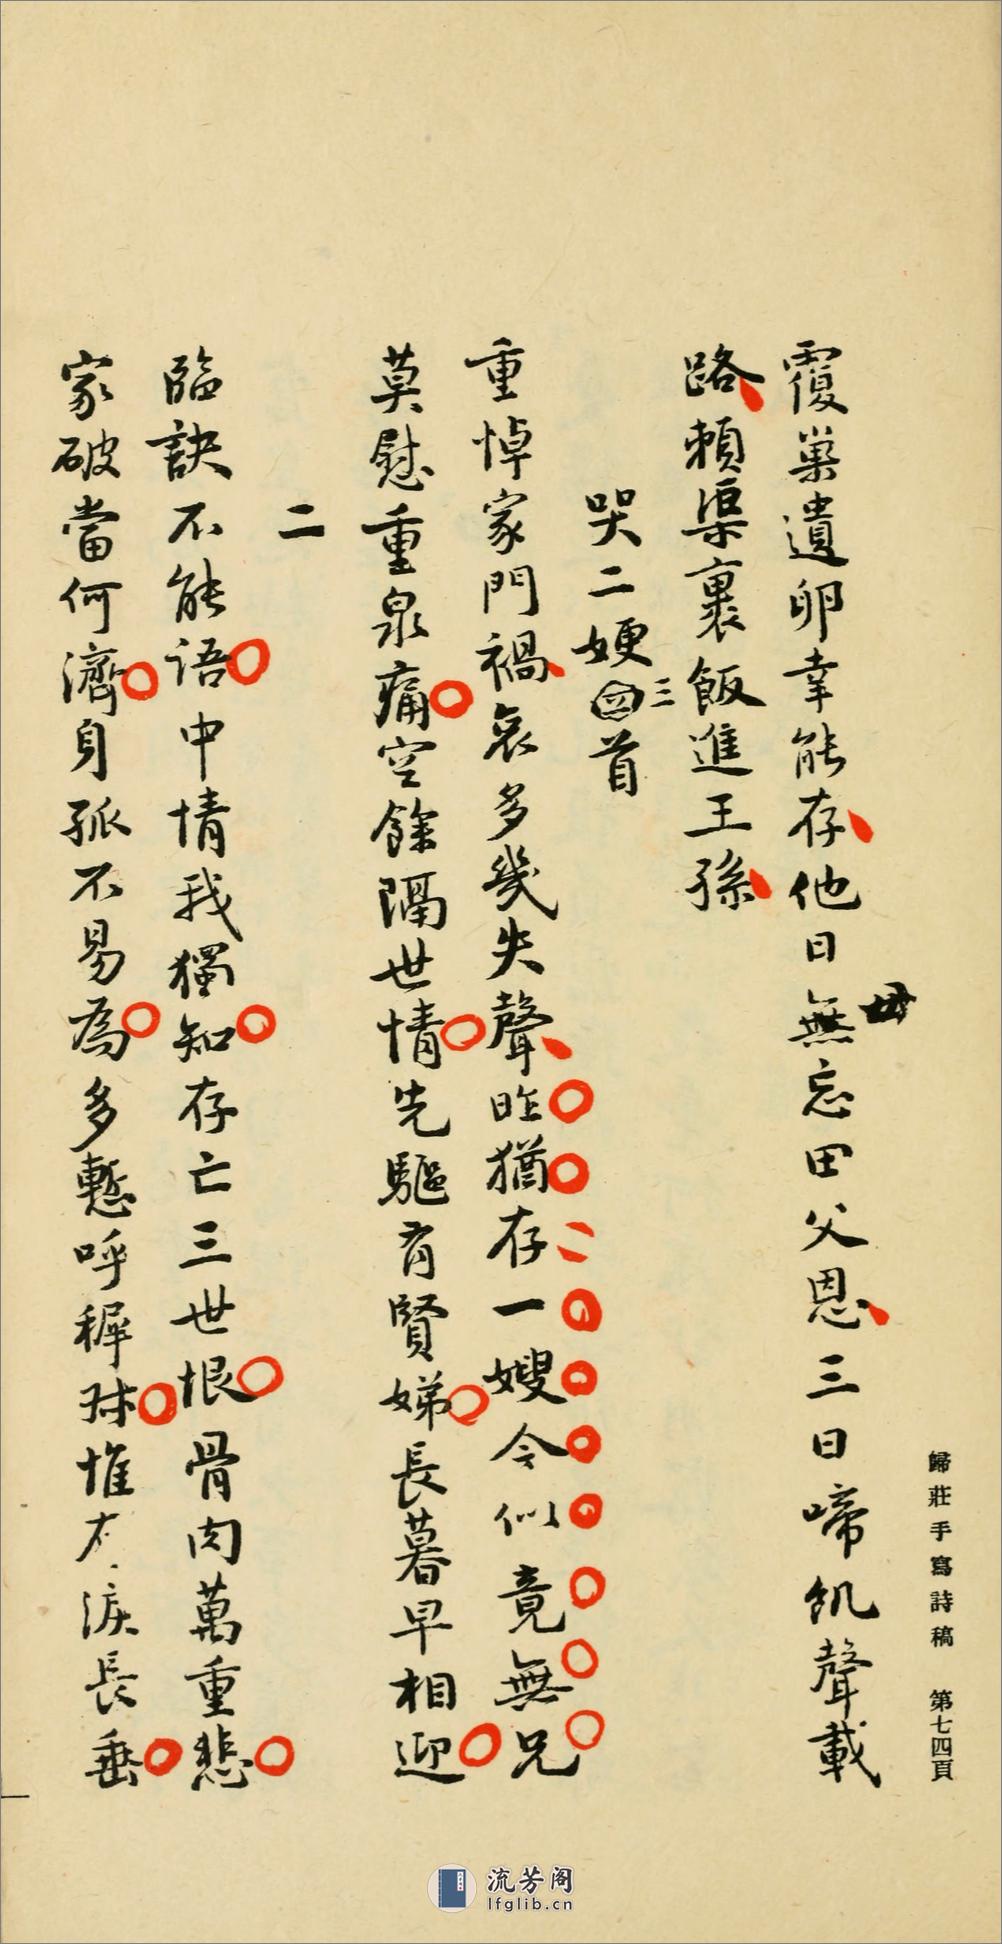 歸莊手寫詩稿 第七四頁
覆巢遺卵幸能存他日無忘田父恩三日啼飢聲載
毋
路賴渠裹飯進王孫
哭二㛐四首
三
重悼家門禍哀多幾失聲昨猶存一嫂今似竟無兄
莫慰重泉痛空餘隔世情先驅有賢娣長暮早相迎
二
臨訣不能語中情我獨知存亡三世恨骨肉萬重悲
家破當何濟身孤不易為多慙呼稺叔惟有淚長垂
流芳阁
lfglib.cn